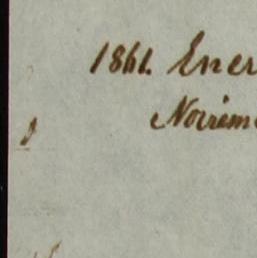 1861. Ener
Noirem